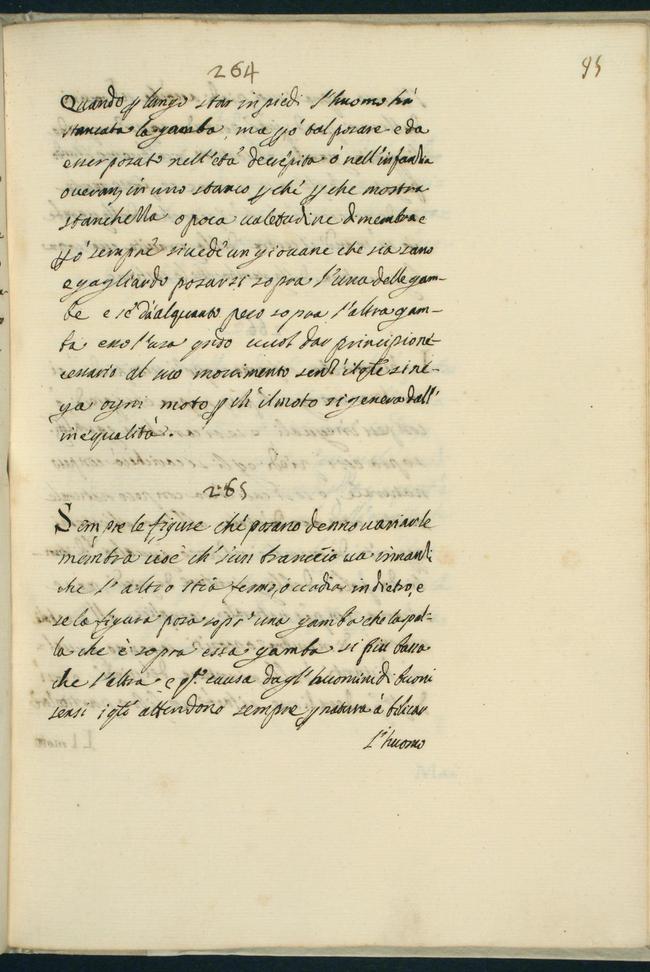 264
95
Quando p lungo star in piedi l'huomo hà
stancata la gamba ma pò tal posare e da
esser posato nell'età decrepita ò nell'infantia
overam̃ in uno stanco p chè p che mostra
stanchezza o poca valetudine di membra e
pò sempre si vede un giovane che sia sano
e gagliardo posarsi sopra l'una delle gam-
be e se dà alquanto peso sopra l'altra gam-
ba esso l'usa vuol dar principio ne-
cessario al suo movimento senza il qle si ne-
ga ogni moto p ch' il moto si genera dall'
inequalità.
265
Sempre le figure che posano denno variar le
membra cioè ch' s'un braccio va innanti
che l' altro stia fermo, ò vadia in dietro, e
se la figura posa sopr' una gamba che la spal-
la che è sopra essa gamba si più bassa
che l'altra e qto. s'usa dagl' huomini di buoni
sensi i qli attendono sempre p natura à bilicar
L'huomo